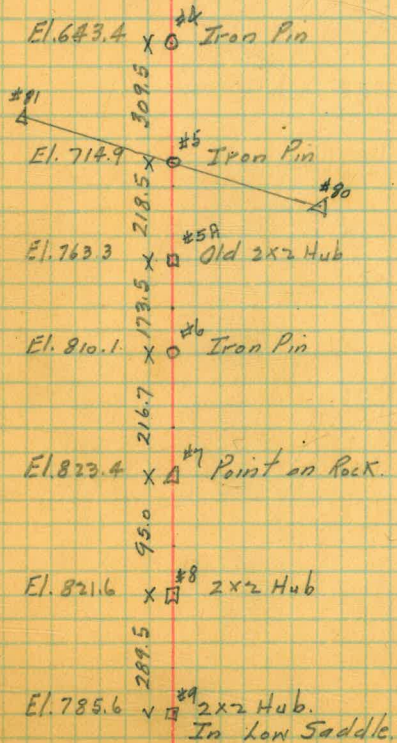 #4
El.643.4 X Iron Pin
309.5
#81
#5
El. 714.9 X Iron Pin
#80
218.5
#5A
El. 763.3 X Old 2x2 Hub
173.5
#6
El. 810.1 X Iron Pin
216.7
#7
El. 823.4 X Point on Rock.
95.0
#8
El. 821.6 X 2x2 Hub
289.5
#9
El. 785.6 2x2 Hub.
In Low Saddle.